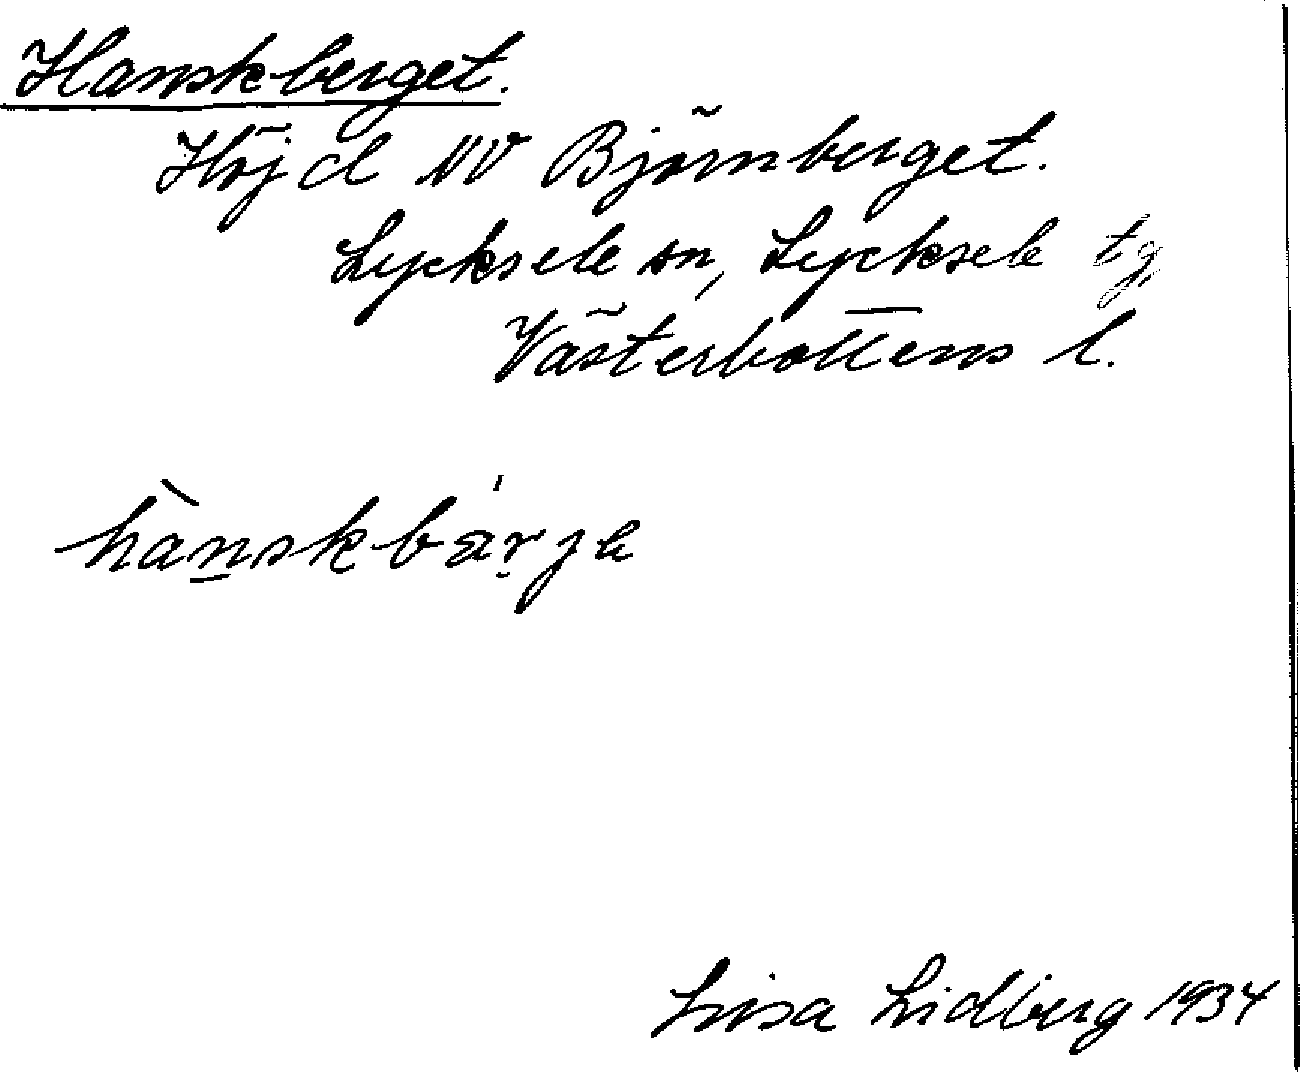 Hanskberget.
Höjd NV Björnberget.
Lycksele sn, Lycksele tg,
Västerbottens l.
hànskbä́rje
Lisa Lidberg 1934